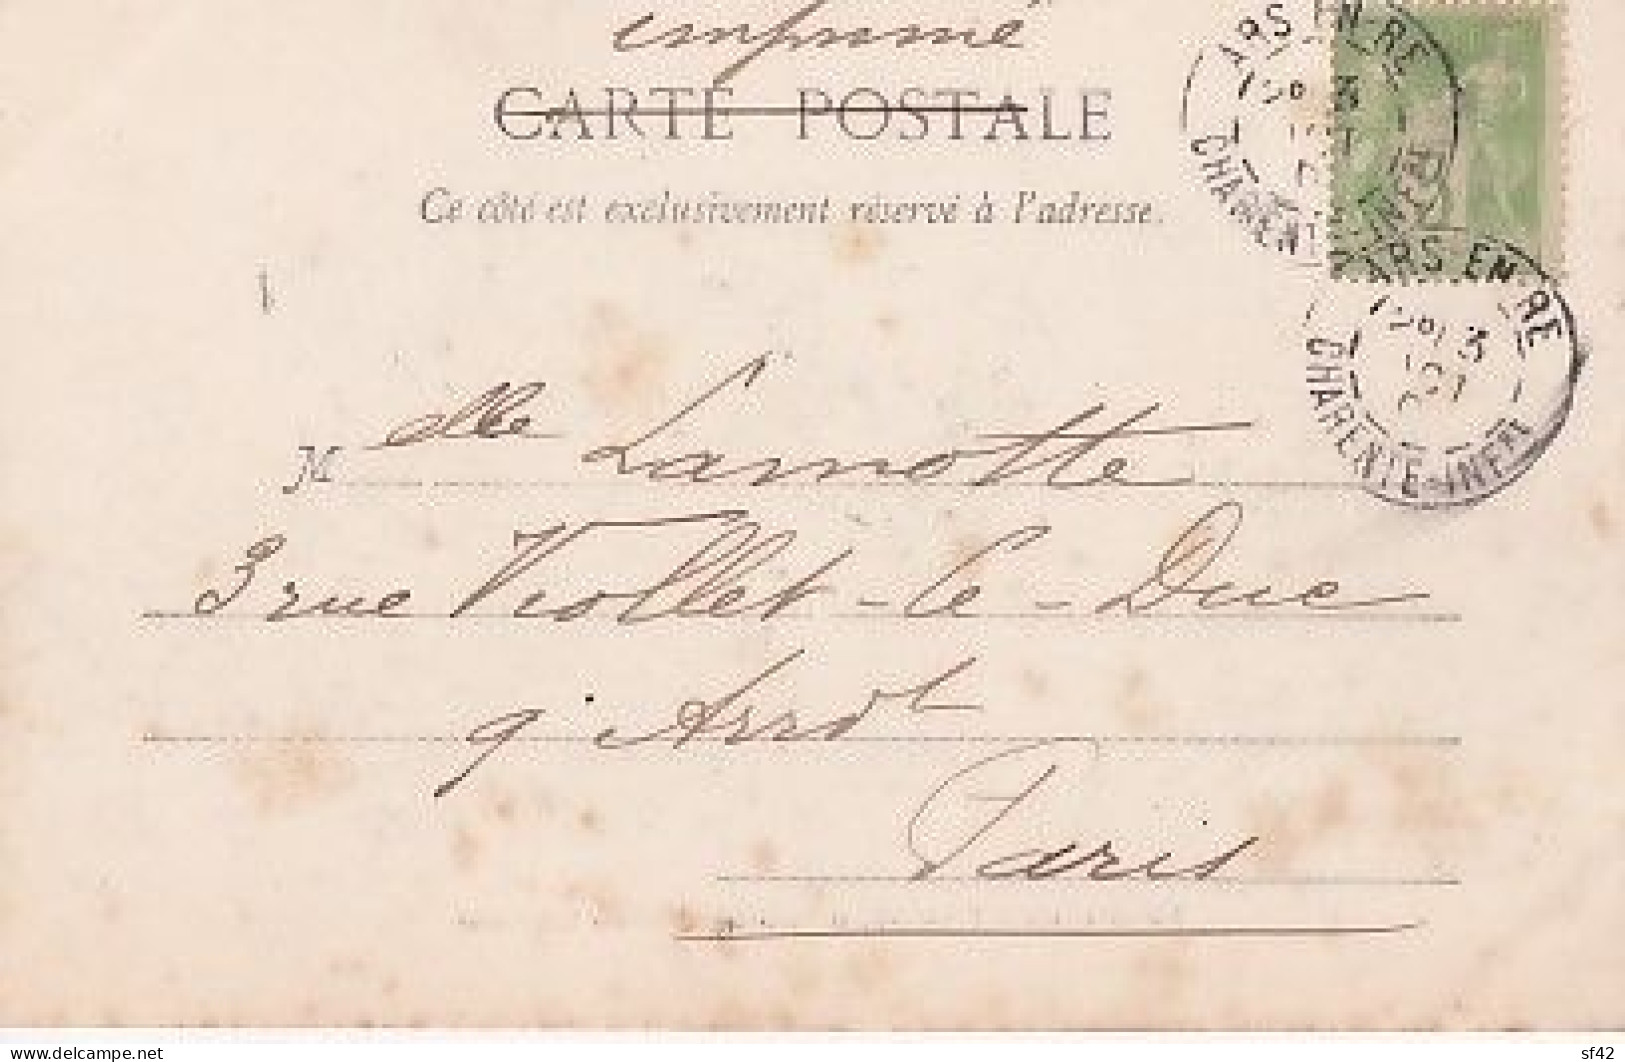 imprimé
CARTE POSTALE
Ce côté est exclusivement réservé à l'adresse.
ARS-EN-RE
CHARENTE-INFRE
ARS-EN-RE
CHARENTE-INFRE
Melle Lamotte
3 rue Viollet-le-Duc
9e Arrdt
Paris
delcampe.net
sf42